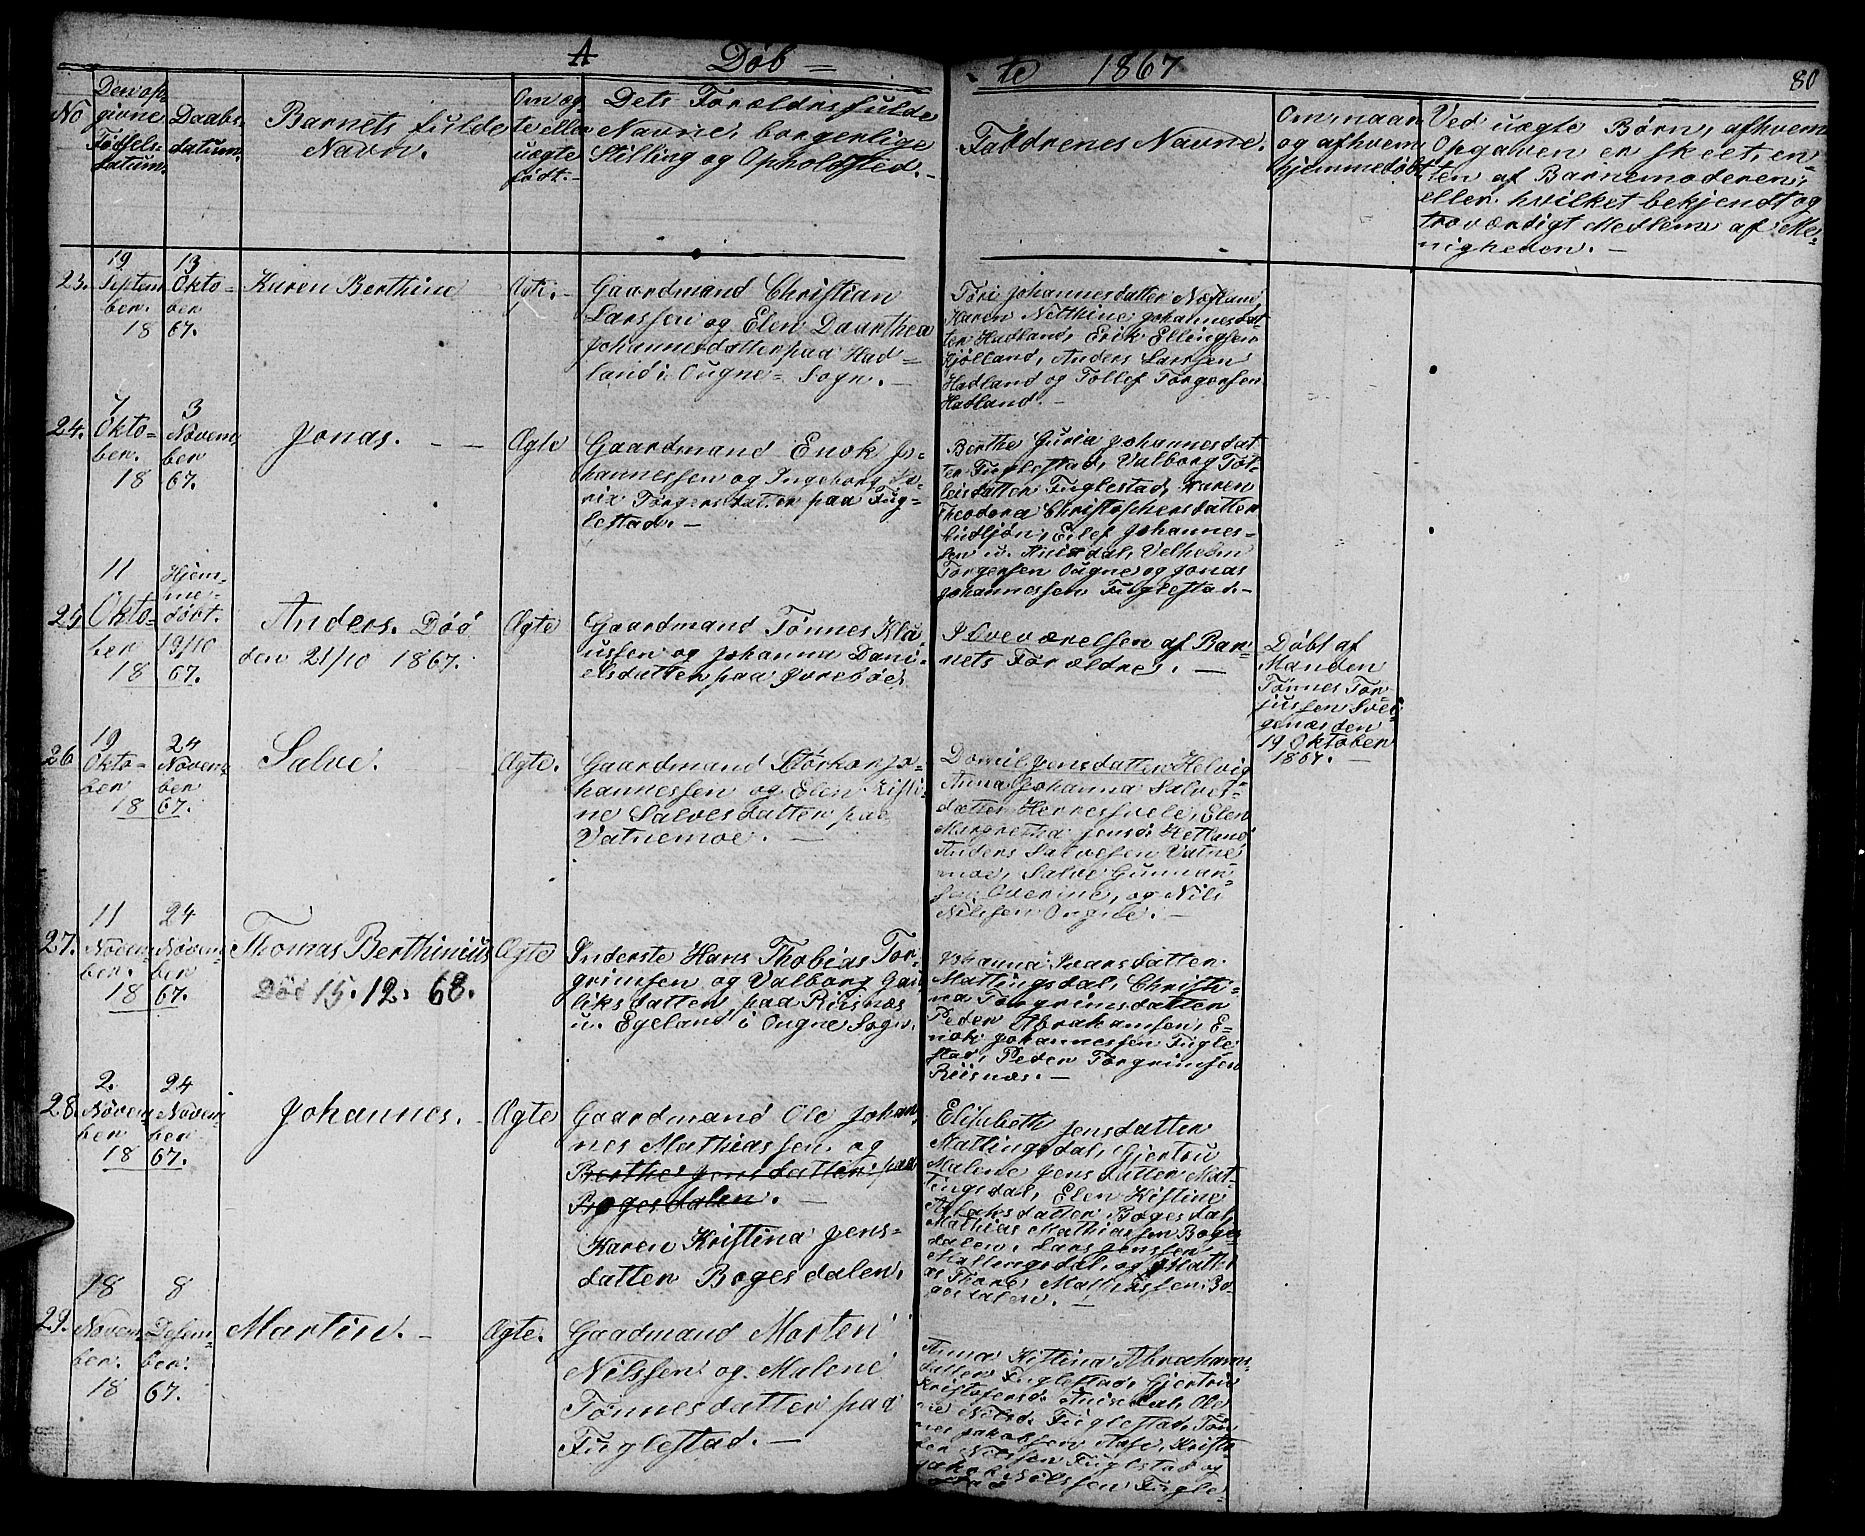 A Døb= te 1867 80
No
Den op-
givne
Fødsels-
datum.
Daabs-
datum.
Barnets fulde
Navn.
Om æg-
te eller
uægte
født.-
Dets Forældres fulde
Navne, borgerlige
Stilling og Opholdsted.-
Faddrenes Navne.
Om, naar
og af hvem
hjemmedøbt
Ved uægte Børn, af hvem
Opgaven er skeet, en-
ten af Barnemoderen,
eller hvilket bekjendt og
troværdigt Medlem af Me-
nigheden.-
23.
19
Septem
ber.
18
13
Okto-
ber
67.
Karen Berthine
Ægte.-
Gaardmand Christian
Larssen og Elen Daarthea
Johannesdatter paa Had-
land i Ougne= Sogn.-
Tori Johannesdatter
Karen Netthine Johannesdat-
ter Hadland, Erik Ellingsen
Anders Larssen
Hadland og Tollef Torgersen
Hadland.-
24.
7
Okto-
ber.
18
3
Novem
ber
67.
Jonas.--
Ægte
Gaardmand Enok Jo-
hannessen og Ingeborg
Torgersdatter paa Fug-
lestad.-
Berthe Guria Johannesdat-
ter Fuglestad, Valborg
Fuglestad, Karen
Theodora Christophersdatter
Eilef Johannes-
sen Velhelm
Torgersen Ougne og Jonas
Johannessen Fuglestad.-
25
11
Okto-
ber
18
Hjem-
me-
døbt.
19/10
67.
Anders. Død
den 21/10 1867.
Ægte
Gaardmand Tønnes Kla-
ussen og Johanna Dani-
elsdatter paa
I Overværelsen af Bar-
nets Forældre.-
Døbt af
Manden
Tønnes Tor-
jussen
den
19 Oktober
1867.-
26
19
Okto-
ber
18
24
Novem-
ber
67.
Salve.
Ægte.
Gaardmand Størkor Jo-
hannessen og Elen Kisti-
ne Salvesdatter paa
Vatnemoe.-
Jensdatter Helvig
Anna Johanna Salves-
datter Elen
Margretha Hetland,
Anders Salvesen Vatne
moe, Salve Gunnar-
sen og Nils
Nilssen Ougne.-
27.
11
Novem-
ber.
18
24
Novem-
ber
67.
Thomas Berthinius
Død 15. 12. 68.
Ægte
Inderste Hans Thobias Tor-
grimsen og Valborg
datter paa Riisnæs
u. Egeland i Ougne Sogn.
Johanna Ivarsdatter
Mattingsdal, Christi-
na Torgrimsdatter
Peder Abrahamsen, E-
nok Johannessen Fugle
stad, Peder Torgrimsen
Riisnæs.-
28.
2.
Novem-
ber
18
24
Novem-
ber
67.
Johannes.
Ægte
Gaardmand Ole Johan-
nes Mathiassen og
Berthe Jensdatter paa
Bogesdalen.-
Karen Kristina Jens-
datter Bogesdalen.
Elisabeth Jensdatter
Mattingsdal, Gjertru
Malene Jensdatter Mat-
tingsdal, Elen Kistine
Aslaksdatter Bogesdal,
Mathias Mathiassen Boges-
dalen, Lars Jenssen
Mattingsdal, og Matti-
as Tore Mathiassen Bo-
gesdalen.-
29.
18
Novem-
ber.
18
8
Desem-
ber.
67.
Martin.-
Ægte.
Gaadmand Morten
Nilssen og Malene
Tønnesdatter paa
Fuglestad.-
Anna Kistina Abrahams-
datter Fuglestad, Gjertru
Kristofersd. Ole
Nilsd. Fuglestad, Tøn
nes Jakobssen Kristo
fer Nilssen Fuglestad og
Jakob Nilssen Fugle-
stad